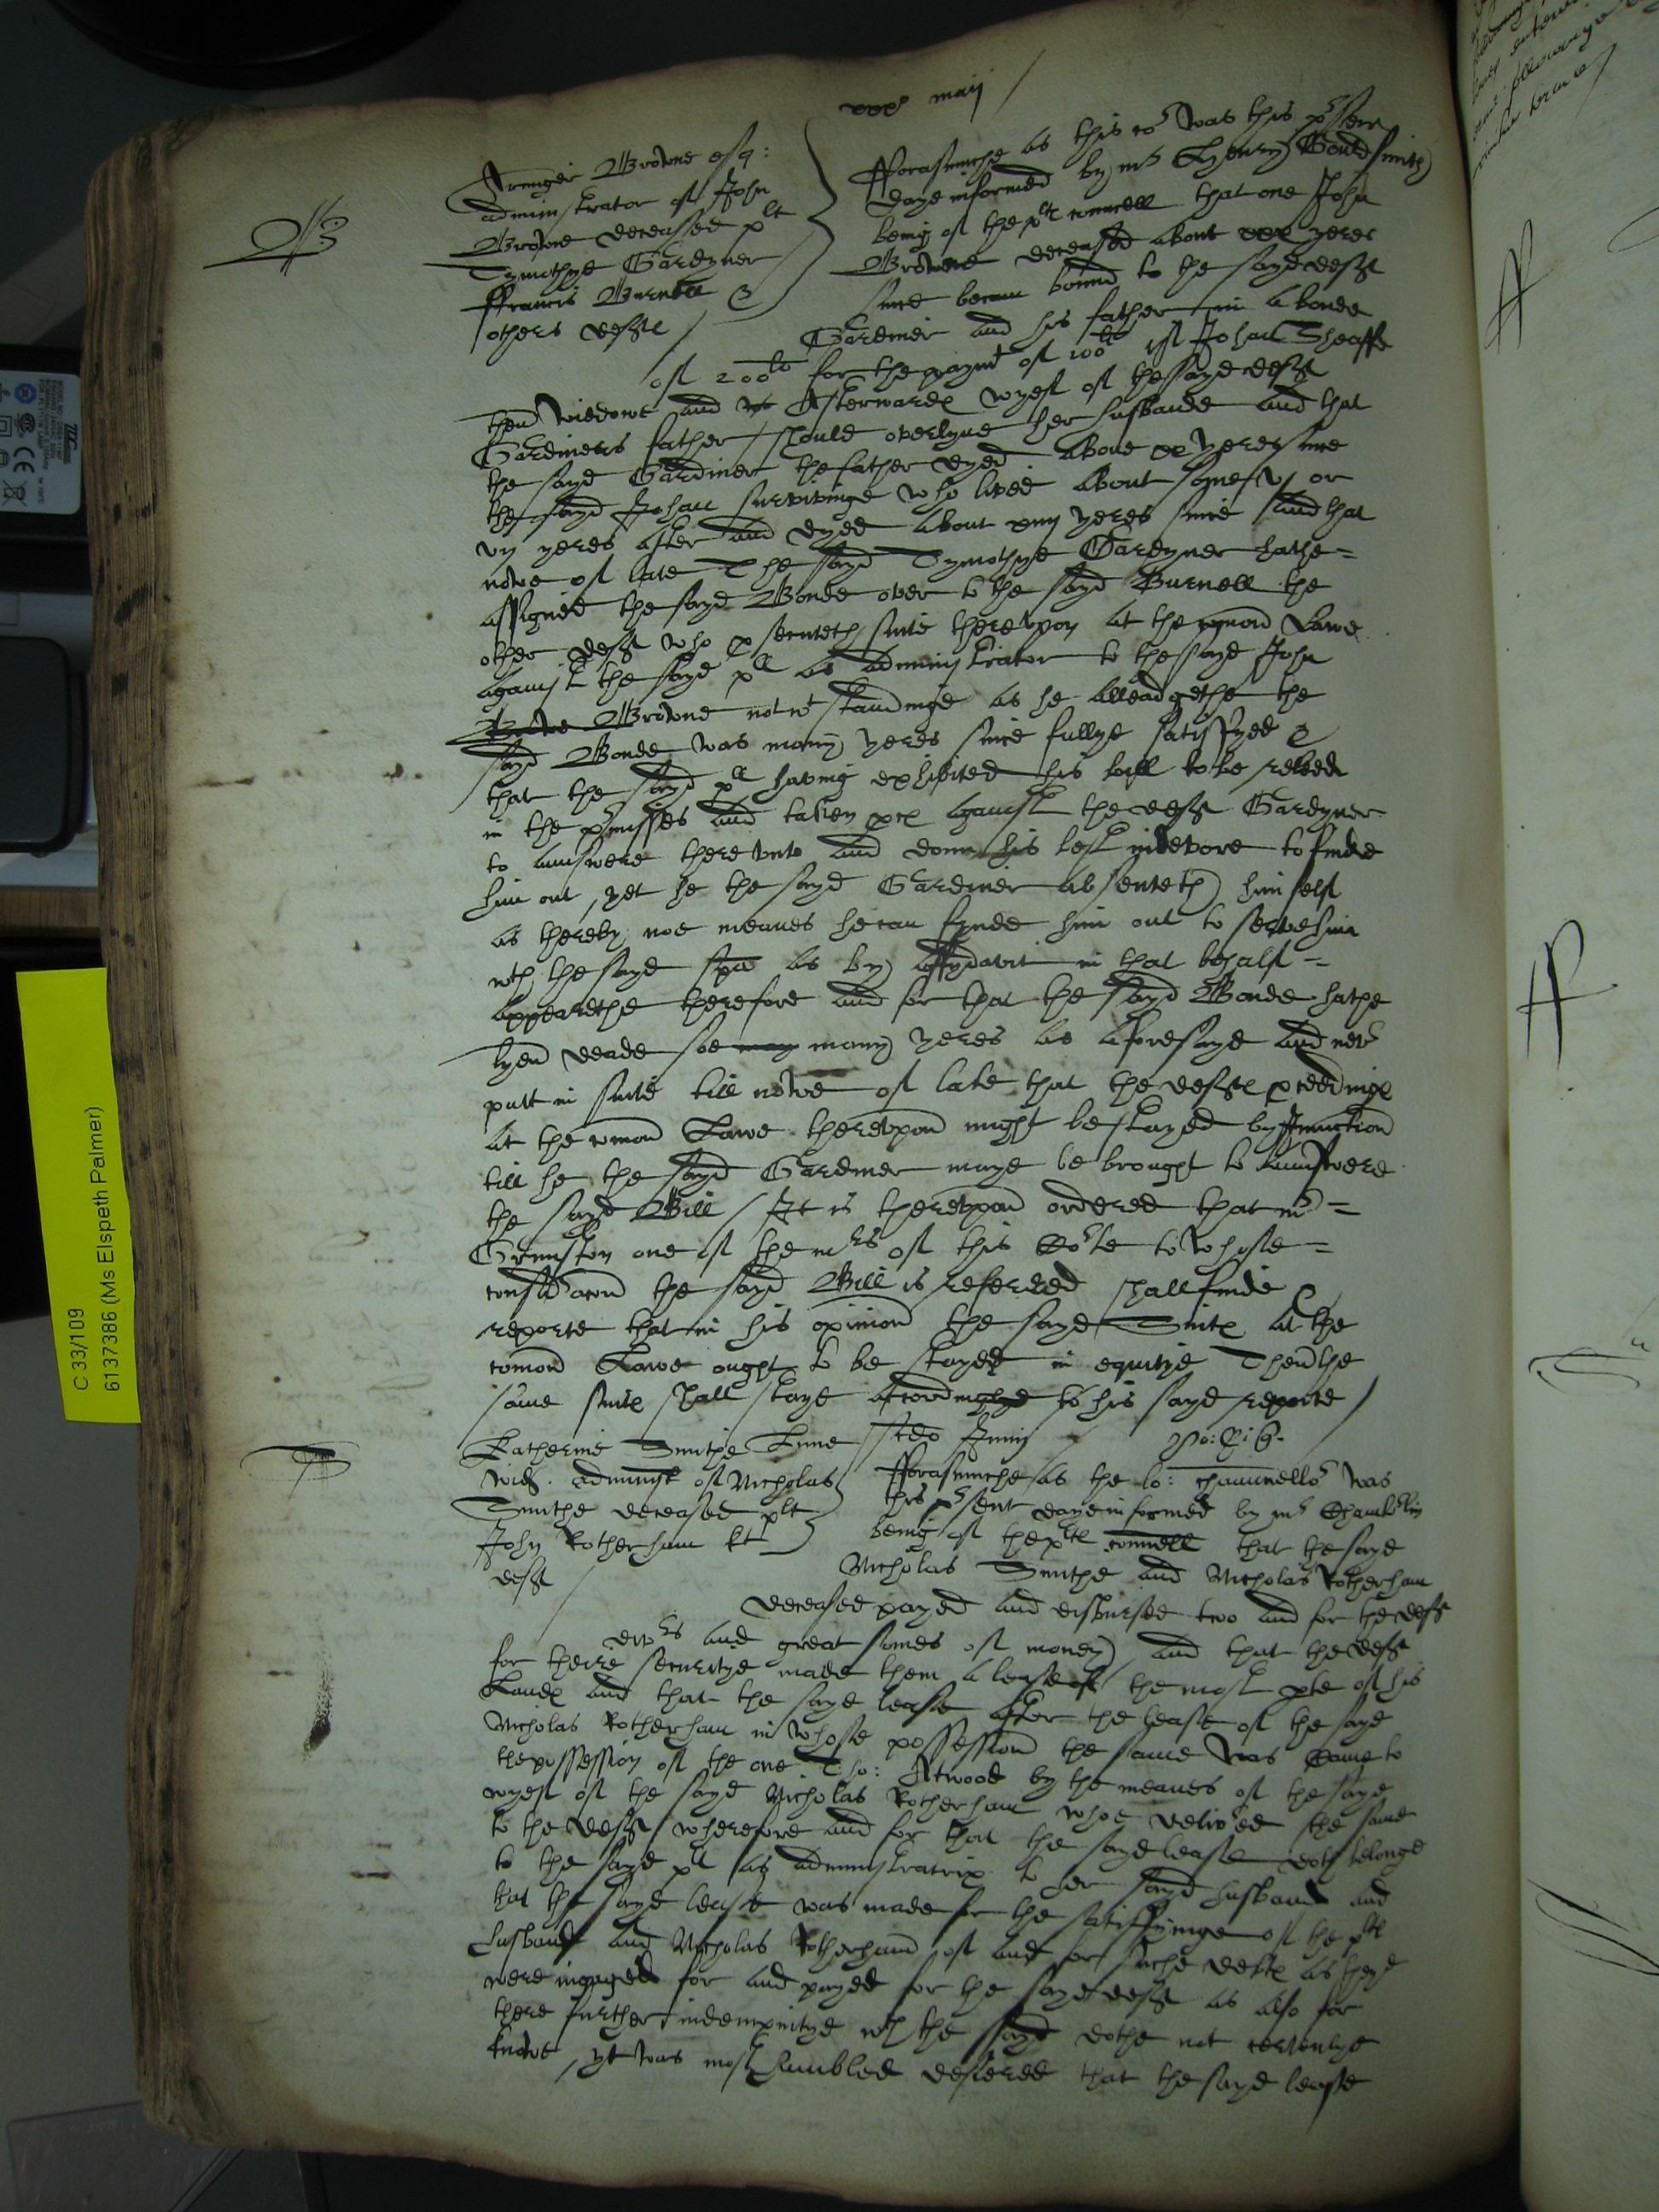 xxx maij
B
Brewne esq:
administrator of John
Browne deceased plt
Tymothye Gardyner
Ffrancis Burnell &
others deftes
Fforasmuche as this cort was this pssent
daye informed by mr Henry Gouldsmith
being of the pltes councell that one John
Browne deceased about xxx yeres
since becam bound to the sayd deft
Gardiner and his father in a bonde
of 200li for the paymt of 100li yf Johan Sheaffe
then wiedowe and Afterwardes wyef of the sayd deft
Gardiners father should overlyve her husbande and that
the sayd Gardiner the father dyed above xx yeres since
the sayd Johan survivinge who lived about some vj or
vij yeres after and dyed about xiiij yeres since and that
nowe of late The sayd Tymothye Gardyner hathe =
assigned the sayd Bonde over to the sayd Burnell the
other deft who psecuteth suite therevpon at the comon Lawe
against the sayd plt as administrator to the sayd John
Browne notwtstandinge as he alleadgethe the
sayd Bonde was many yeres since fullye satisfyed &
that the sayd plt having exhibited his bill to be releved
in the pmisses and taken pces against the deft Gardyner
to aunswere therevnto and donn his best indevore to finde
him out, yet he the sayd Gardiner absenteth himself
as thereby noe meanes he can fynde him out to serve him
wth the sayd spa as by affydavit in that behalf =
appearethe therefore and for that the sayd Bonde hathe
lyen deade soe may many yeres as aforesayd and nevr
putt in suite till nowe of late that the deftes pceedinges
at the comon Lawe therevpon might be stayed by Iniunction
till he the sayd Gardiner maye be brought to aunswere
the sayd Bill / It is therevpon ordered that mr =
Grimston one of the mrs of this Corte to whose =
considracon the sayd Bill is referred shall finde &
reporte that in his opinion the sayd Suites at the
comon Lawe ought to be stayed in equitye Then the
same suites shall staye accordinglye to his sayd reporte /
Katherine Smithe
wid. administ of Nicholas
Smithe deceased plt
John Rotherham kt
deft
Lune scdo Junij
Fforasmuche as the lo: chauncellor was
this psent daye informed by mr Chamblin
being of the pltes councell that the sayd
Nicholas Smithe and Nicholas Rotherham
deceased payed and disbursed two and for the deft
divrs and great somes of money and that the deft
for theire securitye made them a lease of the most pte of his
Landes and that the sayd lease after the lease of the sayd
Nicholas Rotherham in whose possession the same was came to
the possession of the one Tho: Atwood by the meanes of the sayd
wyef of the sayd Nicholas Rotherham whoe delivred the same
to the deft wherefore and for that the sayd lease doth belonge
to the sayd plt as administratrix to her sayd husband and
that the sayd lease was made for the satisfyinge of the pltes
husband and Nicholas Rotherham of and for suche debtes as theye
were ingaged for and payed for the sayd deft as also for
there further indempnitye wch the sayd dothe not certenlye
knowe, yt was most humbled desiered that the sayd lease
C 33/109
6137386 (Ms Elspeth Palmer)